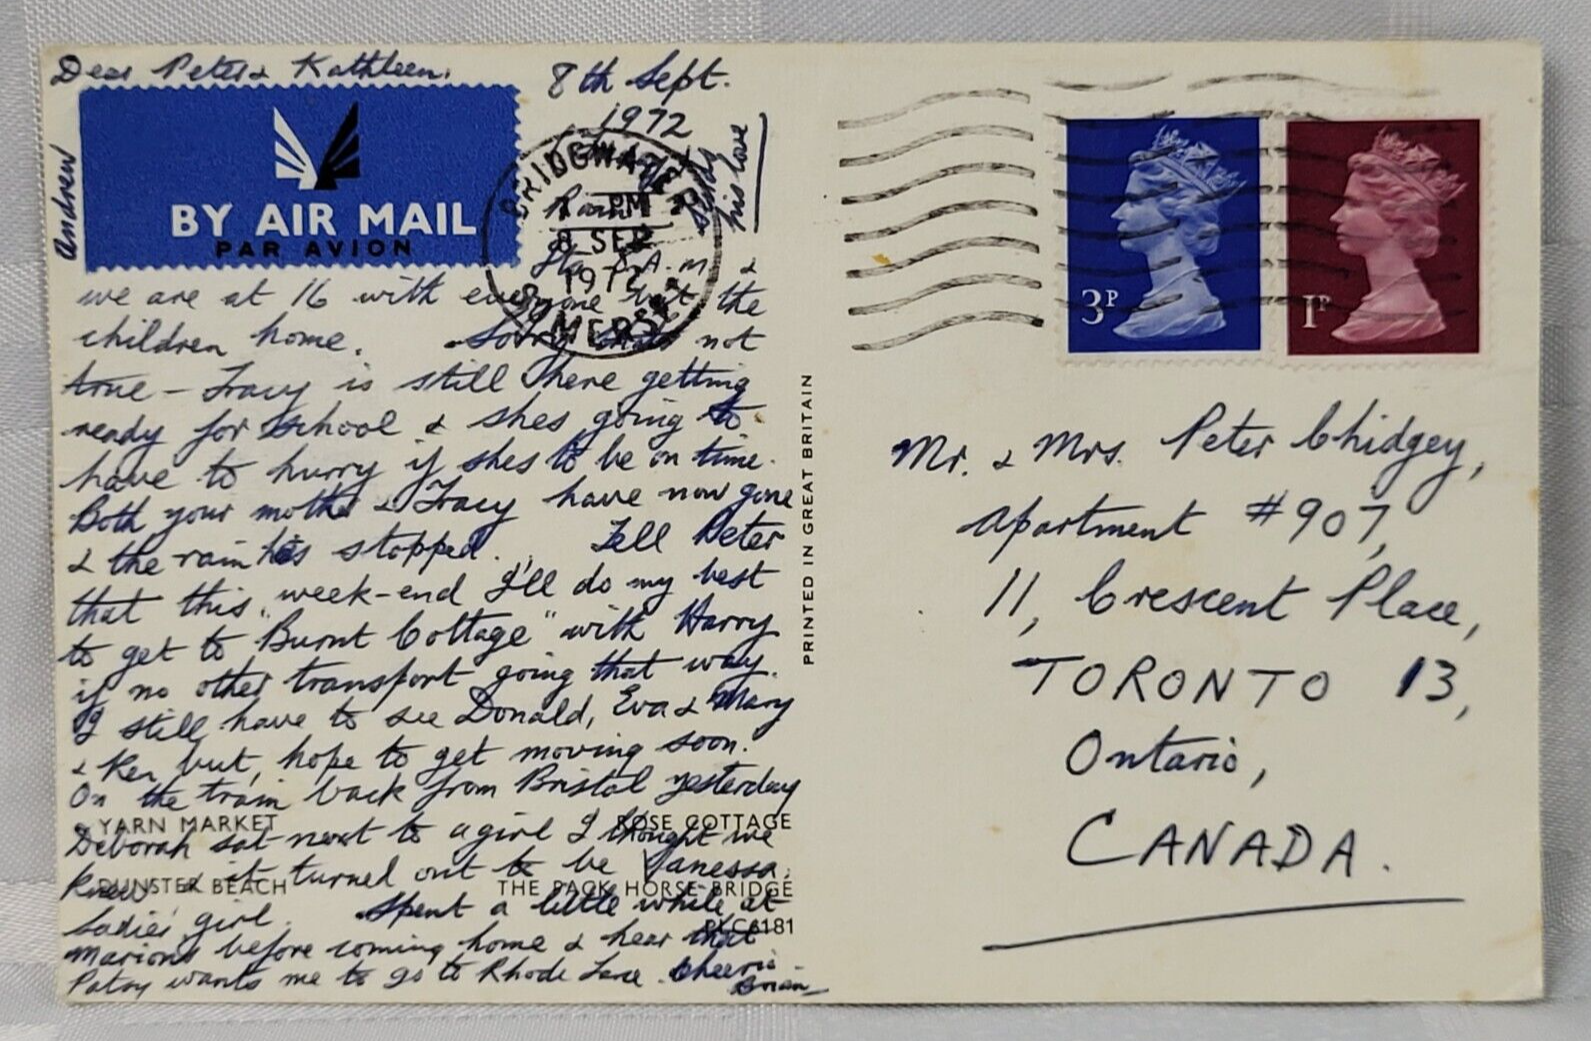 Dear Peter & Kathleen,
8th Sept.
1972
Andrew
sends
his love
BY AIR MAIL
PAR AVION
BRIDGWATER
PM
8 SEP
1972
SOMERSET
3P
1P
Its 8 A.M. &
we are at 16 with everyone but the
children home. Sorry thats not
true - Tracy is still there getting
ready for school & shes going to
have to hurry if shes to be on time.
Both your mother & Tracy have now gone
& the rain has stopped. Tell Peter
that this week-end I'll do my best
to get to "Burnt Cottage" with Harry
if no other transport going that way.
I still have to see Donald, Eva & Mary
& Ken but, hope to get moving soon.
On the train back from Bristol yesterday
Deborah sat next to a girl I thought we
knew & it turned out to be Vanessa,
Sadies' girl. Spent a little while at
Marions before coming home & hear that
Patsy wants me to go to Rhode Lane. Cheerio
Brian
YARN MARKET ROSE COTTAGE
DUNSTER BEACH THE PACK HORSE BRIDGE
PLC6181
PRINTED IN GREAT BRITAIN
Mr. & Mrs. Peter Chidgey,
Apartment #907,
11, Crescent Place,
TORONTO 13,
Ontario,
CANADA.